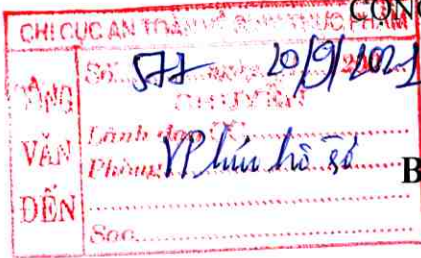 CỘNG
CHI CỤC AN TOÀN VỆ SINH THỰC PHẨM
CÔNG VĂN ĐẾN
Số: 577 ngày 20/9/2021
CHUYỂN
Lãnh đạo
Phòng VP lưu hồ sơ
B
Sao